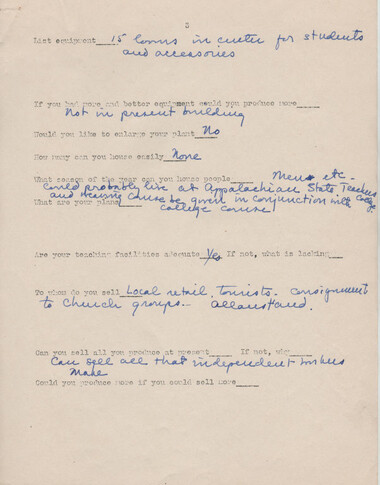 3
List equipment 15 looms in center for students
and accessories
If you had more and better equipment could you produce more
Not in present building
Would you like to enlarge your plant No
How many can you house easily None
What season of the year can you house people Men etc-
could probably live at Appalachian State Teachers
and weaving course be given in conjunction with college
What are your plans college course
Are your teaching facilities adequate Yes If not, what is lacking
To whom do you sell Local retail, tourists. Consignment
to Church groups - Allanstand.
Can you sell all you produce at present If not, why
Can sell all that independent workers
make
Could you produce more if you could sell more